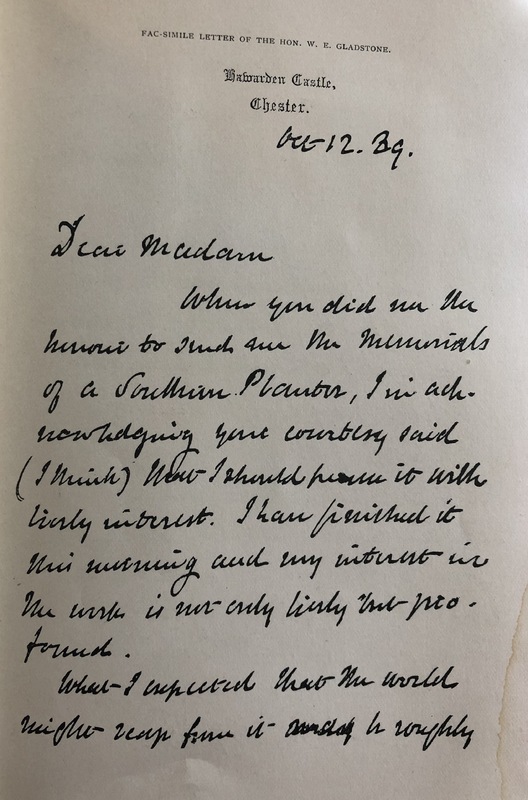 FAC-SIMILE LETTER OF THE HON. W. E. GLADSTONE.
Hawarden Castle,
Chester.
Oct 12. 89.
Dear Madam
When you did me the
honour to send me the Memorials
of a Southern Planter, I in ack-
nowledging your courtesy said
(I think) that I should peruse it with
lively interest. I have finished it
this morning and my interest in
the work is not only lively but pro-
found.
What I expected that the world
might reap from it be roughly